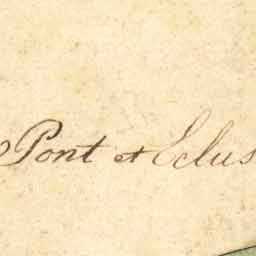 Pont et Eclus